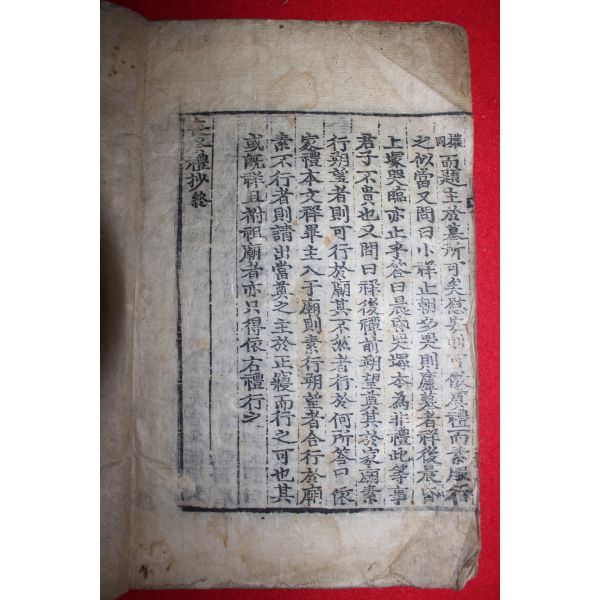 而題主於墓所可矣慰安則可依虞禮而
之似當又問曰小祥止朝夕哭則廬墓者祥後晨昏
上塚哭臨亦止乎答曰晨昏哭塚本為非禮此等事
君子不貴也又問曰祥後禫前朔望奠其於家廟素
行朔望者則可行於廟其不然者行於何所答曰依
家禮本文祥畢主入于廟則素行朔望者合行於廟
素不行者則請出當奠之主於正寢而行之可也其
或旣祥且祔祖廟者亦只得依右禮行之
禮抄終